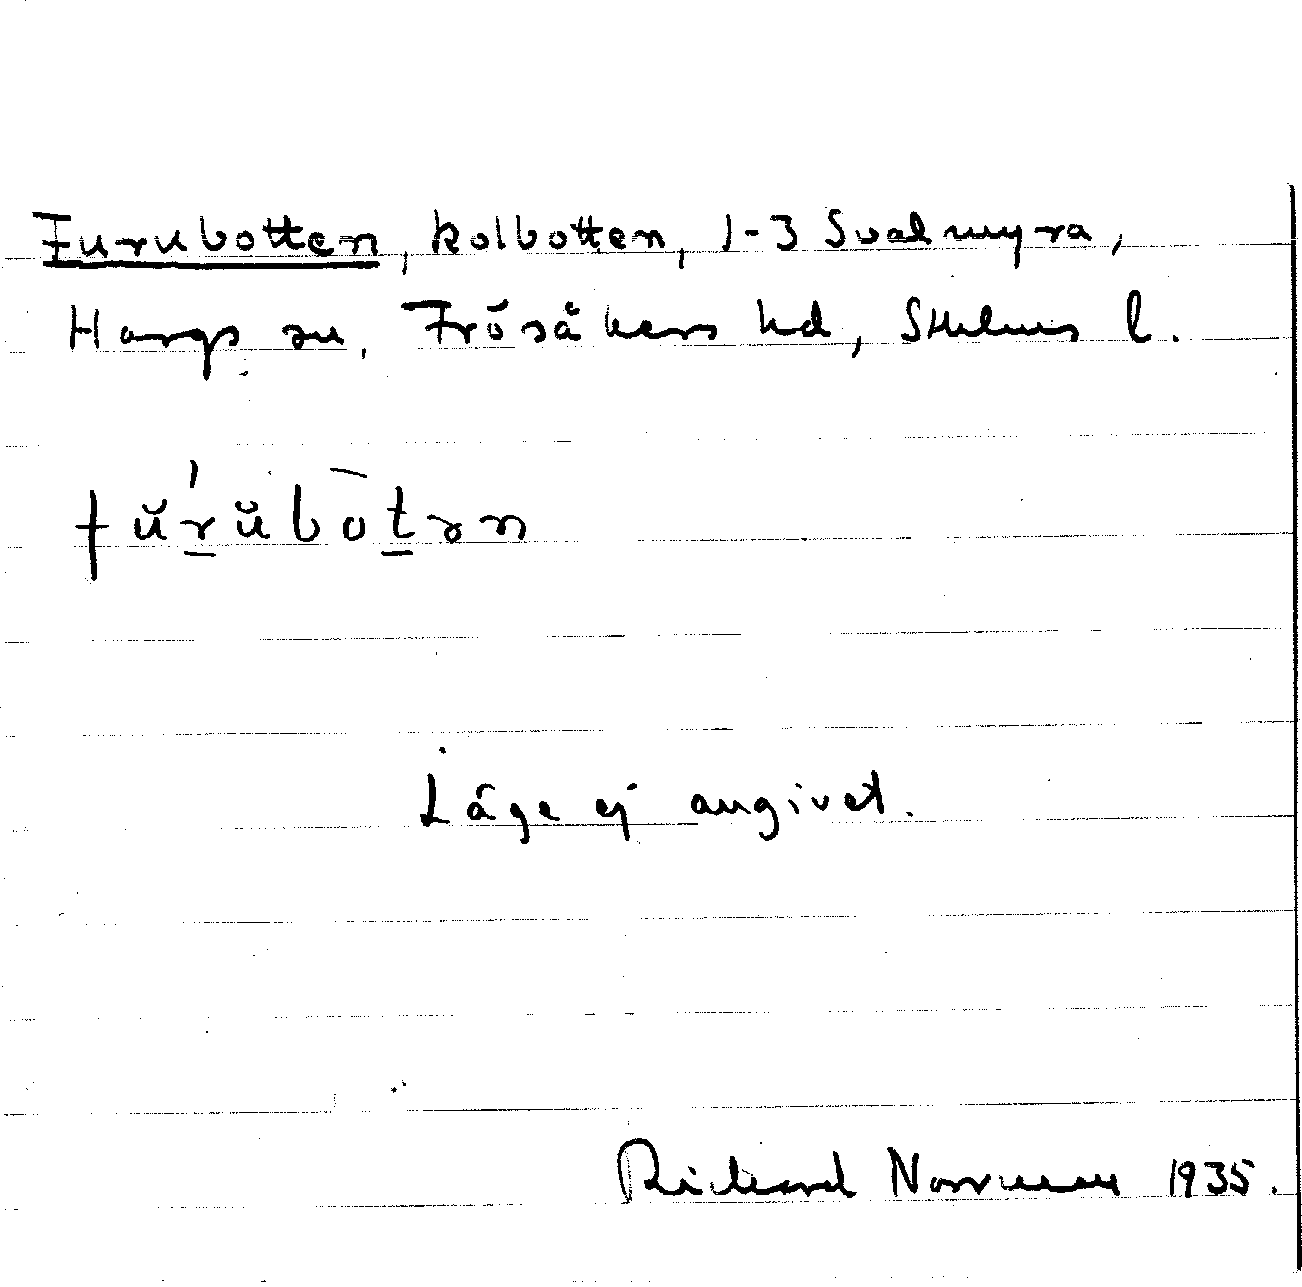 Furubotten, kolbotten, 1-3 Svalmyra,
Hargs sn, Frösåkers hd, Sthlms l.
fŭ́r̲ŭbōt̲ən
Läge ej angivet.
Richard Norrman 1935.